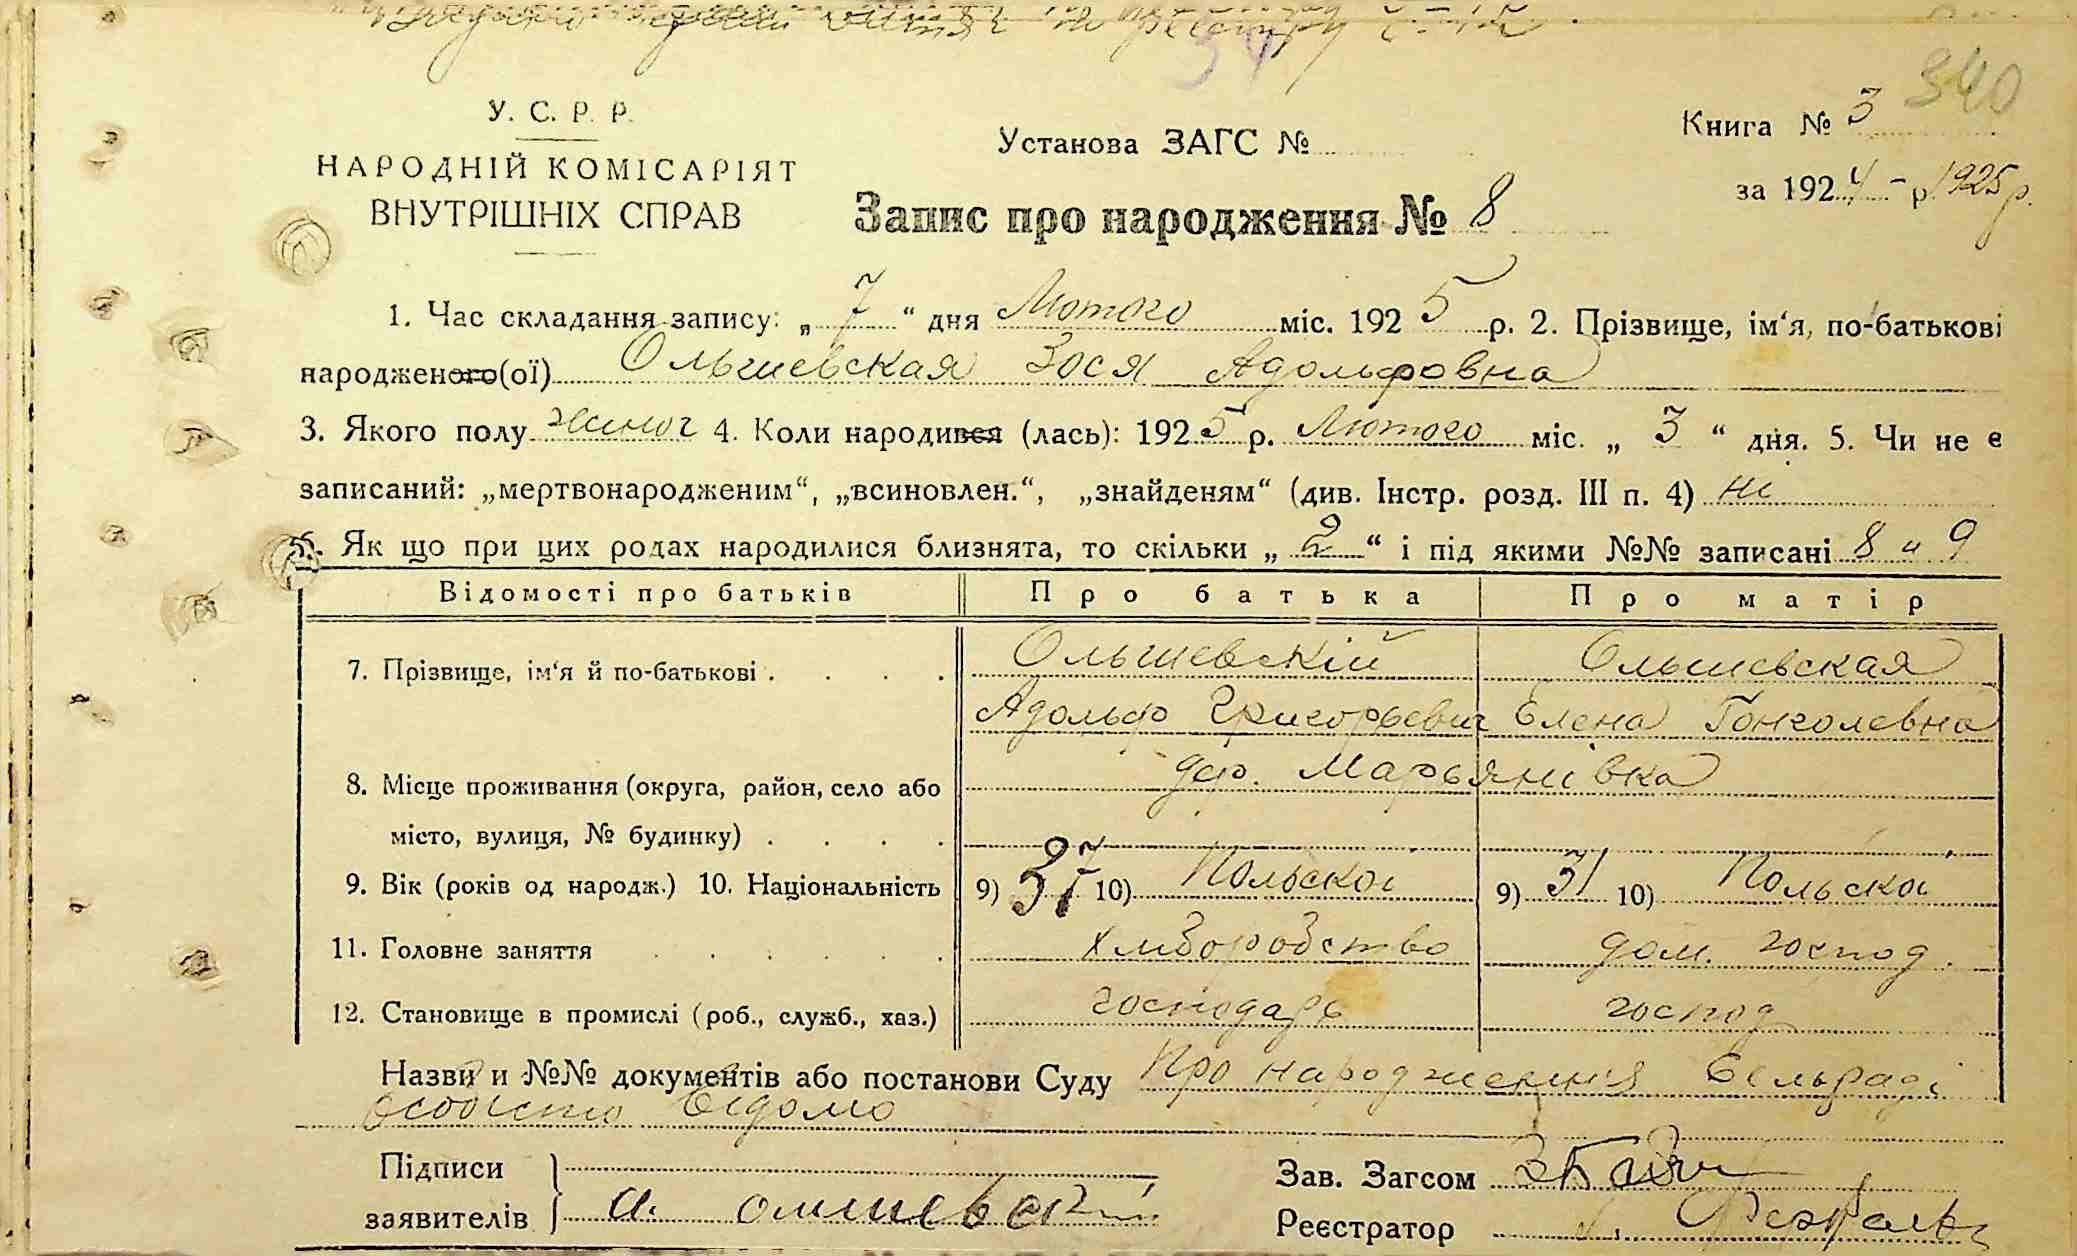 340
У. С. Р. Р.
НАРОДНІЙ КОМІСАРІЯТ
ВНУТРІШНІХ СПРАВ
Установа ЗАГС №
Книга № 3
за 1924 - р. 1925 р.
Запис про народження № 8
1. Час складання запису: „ 7 “ дня Лютого міс. 1925 р. 2. Прізвище, ім‘я, по-батькові
народженого(ої) Ольшевская Зося Адольфовна
3. Якого полу жіноч 4. Коли народився (лась): 1925 р. Лютого міс. „ 3 “ дня. 5. Чи не є
записаний: „мертвонародженим“, „всиновлен.“, „знайденям“ (див. Інстр. розд. III п. 4) ні
6. Як що при цих родах народилися близнята, то скільки „ 2 “ і під якими №№ записані 8 и 9
Відомості про батьків Про батька Про матір
7. Прізвище, ім‘я й по-батькові . . . . Ольшевскій Ольшевская
Адольф Григорьевич Елена Гонголевна
8. Місце проживання (округа, район, село або дер. Марьянівка
місто, вулиця, № будинку) . . . .
9. Вік (років од народж.) 10. Національність 9) 37 10) Польска 9) 31 10) Польска
11. Головне заняття . . . . . . хліборобство дом. господ.
12. Становище в промислі (роб., служб., хаз.) господарь господ
Назви и №№ документів або постанови Суду Про народження Сельраді
особисто відомо
Підписи
заявителів А. Олшевский
Зав. Загсом
Реєстратор